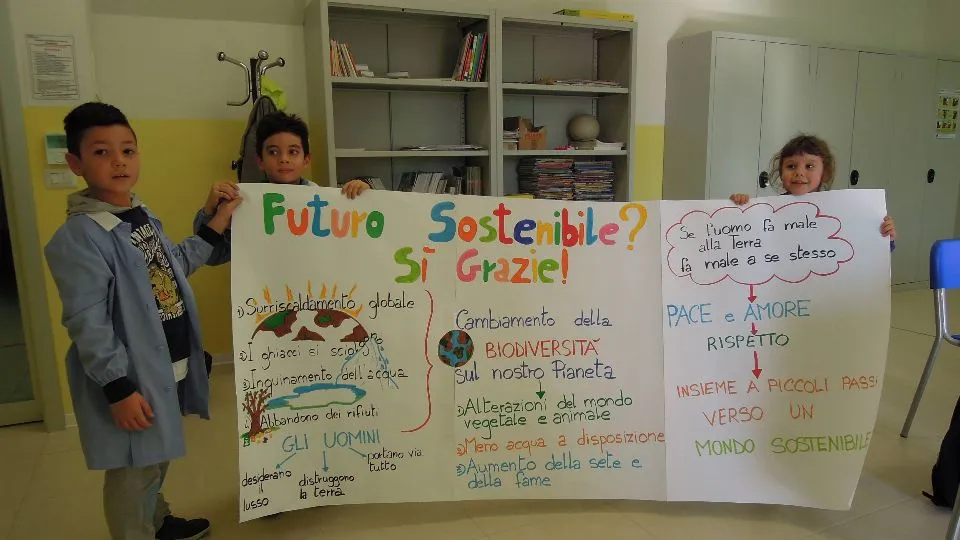 Futuro Sostenibile?
Sì Grazie!
1) Surriscaldamento globale
2) I ghiacci si sciolgono
3) Inquinamento dell'acqua
4) Abbandono dei rifiuti
GLI UOMINI
desiderano
lusso
distruggono
la terra
portano via
tutto
Cambiamento della
BIODIVERSITÁ
sul nostro Pianeta
1) Alterazioni del mondo
vegetale e animale
2) Meno acqua a disposizione
3) Aumento della sete e
della fame
Se l'uomo fa male
alla Terra
fa male a se stesso
PACE e AMORE
RISPETTO
INSIEME A PICCOLI PASSI
VERSO UN
MONDO SOSTENIBILE